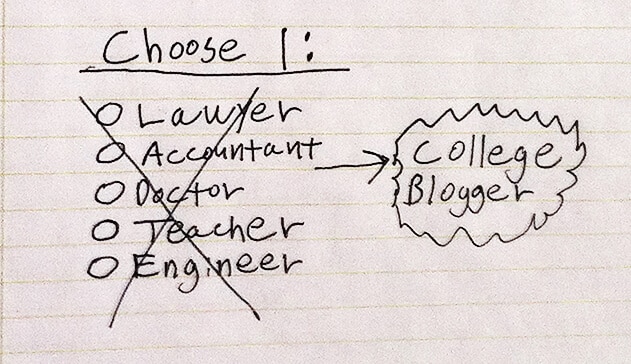 Choose 1:
Lawyer
Accountant
Doctor
Teacher
Engineer
College
Blogger